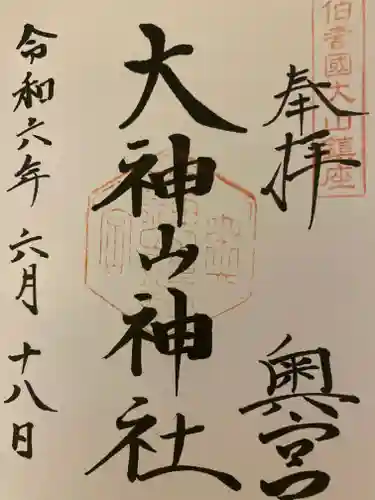 伯耆國大山鎮座
奉拝
奥宮
大神山神社
令和六年 六月 十八日